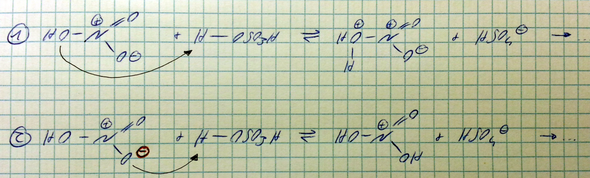 ① HO–N⊕(=O)–O⊖ + H–OSO₃H ⇌ HO(H)–N⊕(=O)–O⊖ + HSO₄⊖ → ...
② HO–N⊕(=O)–O⊖ + H–OSO₃H ⇌ HO–N⊕(=O)–OH + HSO₄⊖ → ...